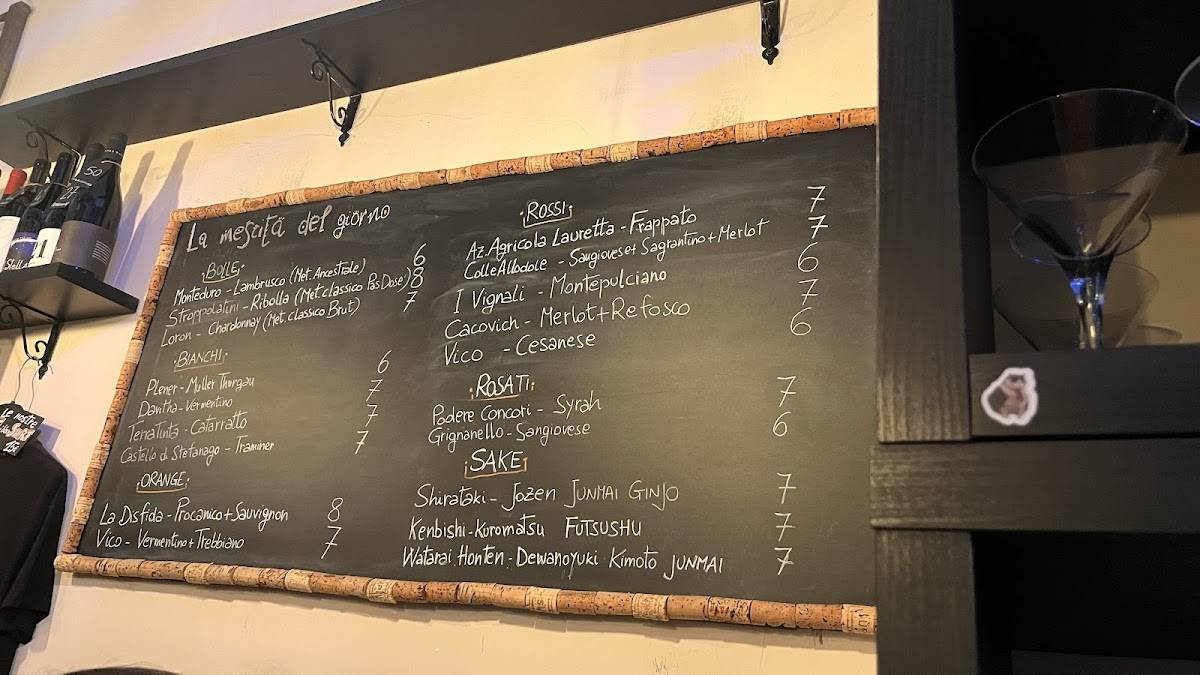 La mescita del giorno
BOLLE
Monteduro - Lambrusco (Met. Ancestrale) 6
Stroppolatini - Ribolla (Met. classico Pas Dosé) 8
Loron - Chardonnay (Met. classico Brut) 7
BIANCHI
Plener - Muller Thurgau 6
Davitha - Vermentino 7
TerraTinta - Catarratto 7
Castello di Stefanago - Traminer 7
ORANGE
La Disfida - Procanico + Sauvignon 8
Vico - Vermentino + Trebbiano 7
ROSSI
Az. Agricola Lauretta - Frappato 7
Colle Allodole - Sangiovese + Sagrantino + Merlot 7
I Vignali - Montepulciano 6
Cacovich - Merlot + Refosco 7
Vico - Cesanese 6
ROSATI
Podere Concori - Syrah 7
Grignanello - Sangiovese 6
SAKE
Shirataki - Jozen JUNMAI GINJO 7
Kenbishi - Kuromatsu FUTSUSHU 7
Watarai Honten - Dewanoyuki Kimoto JUNMAI 7
Le nostre
15€
50